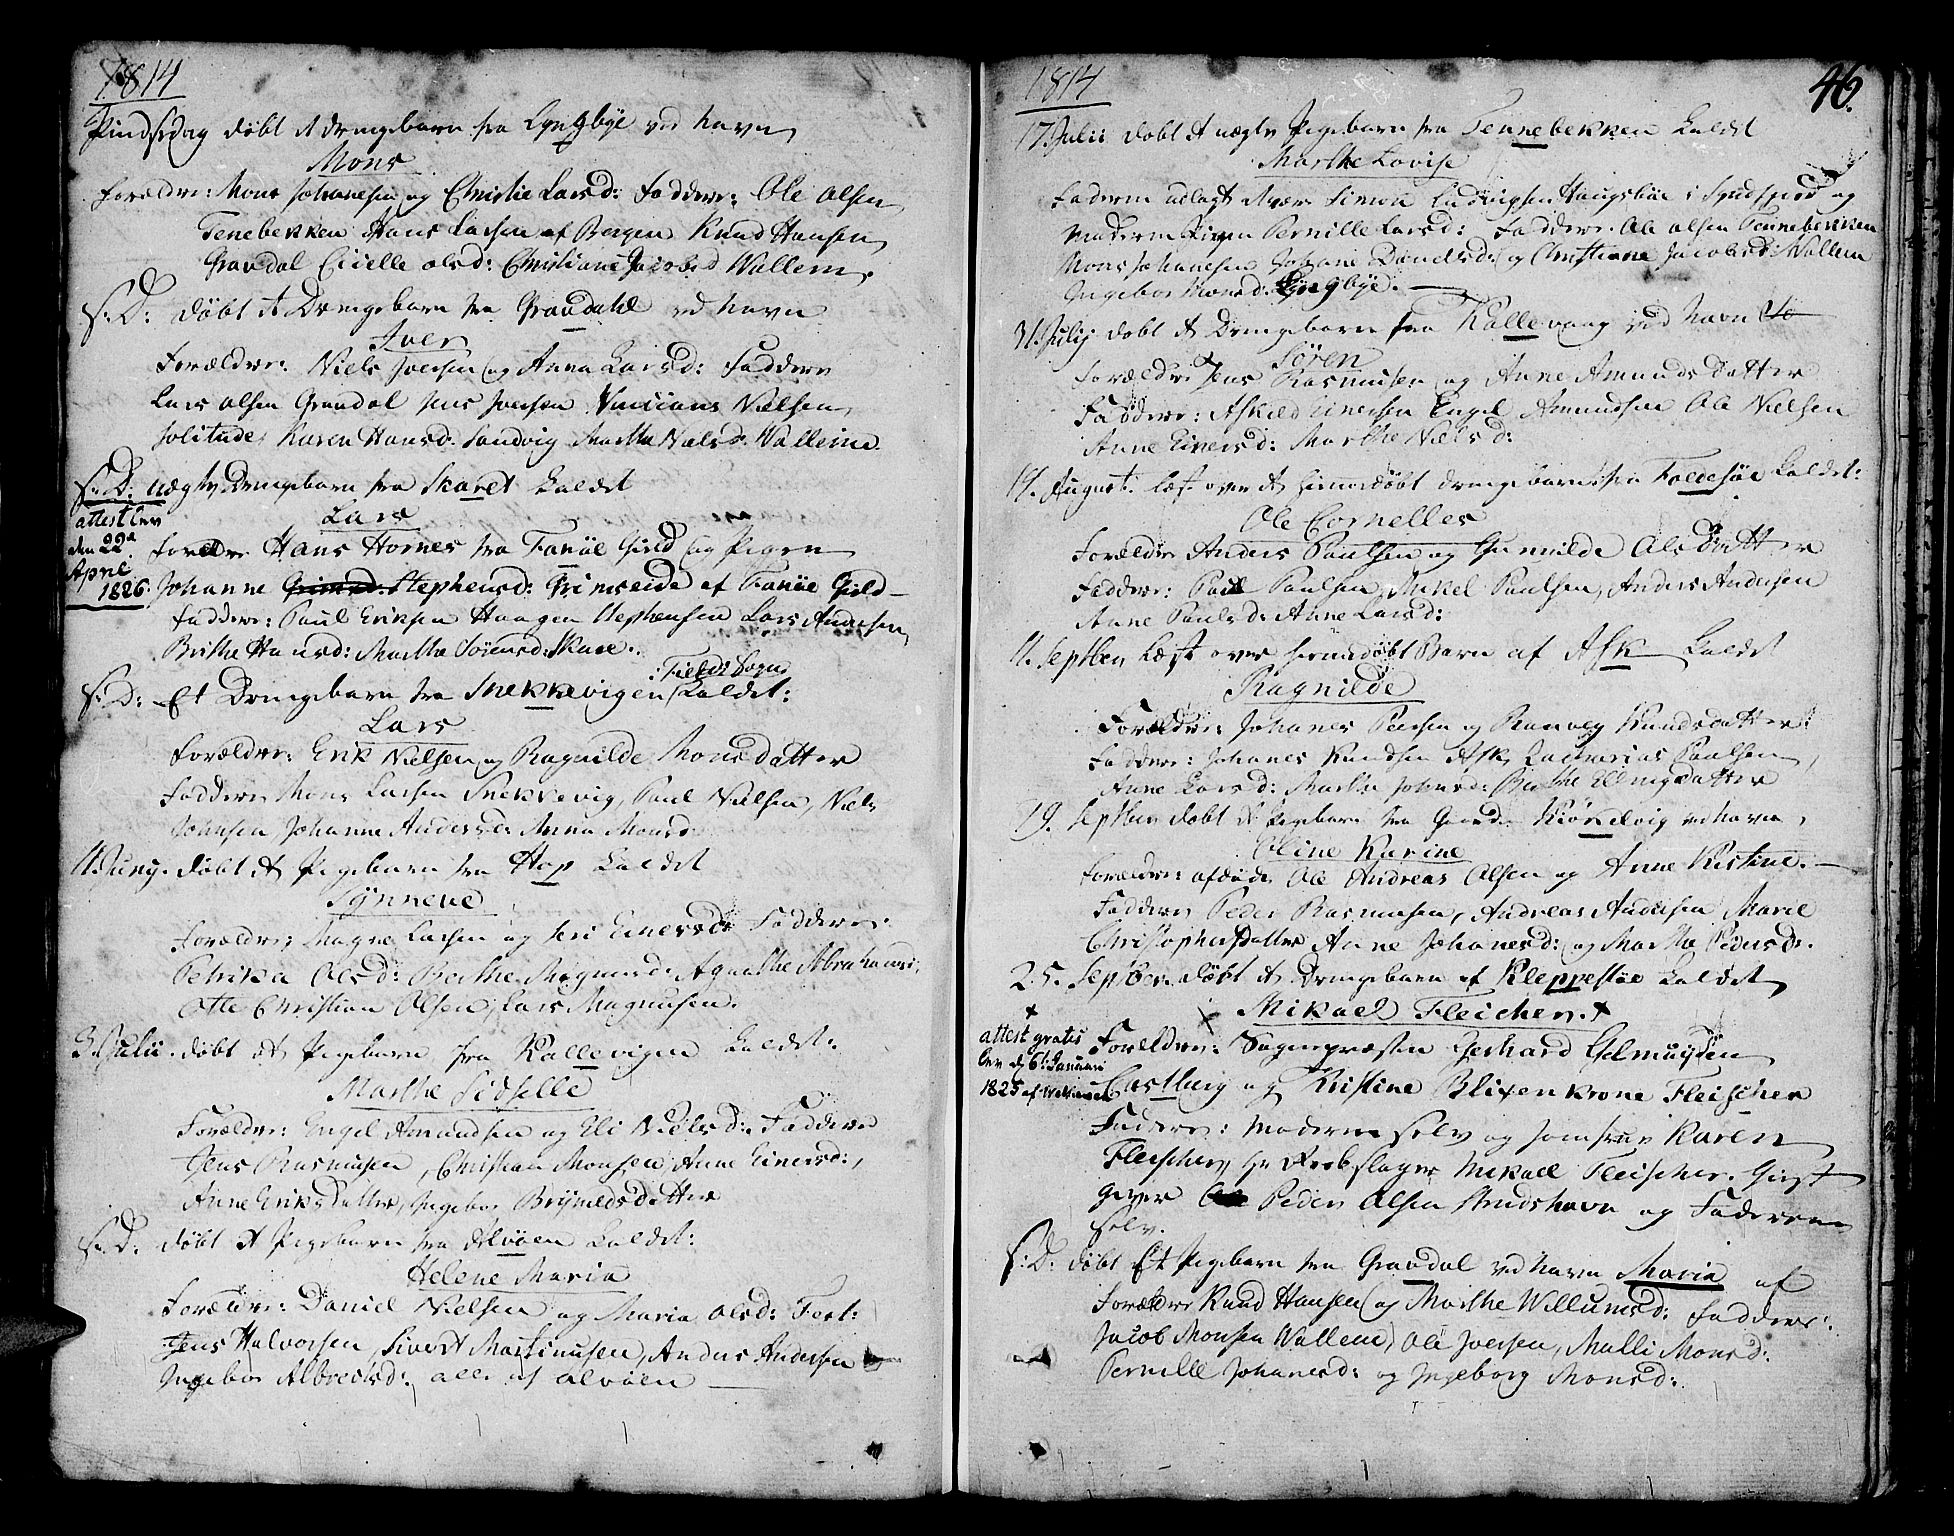 1814
Pindsedag døbt et drengebarn fra Lyngbye ved navn
Mons
Forældre: Mons Johanesen og Christie Larsd: Faddere: Ole Olsen
Tenebekken Hans Larsen af Bergen Knud Hansen
Gravdal Cicelle Olsd: Christiane Jacobsd Wallem.
S: D: døbt et Drengebarn fra Gravdahl ved navn
Iver
Forældre: Niels Iversen og Anna Larsd: Faddere
Lars Olsen Gravdal Jens Iversen Nielsen
Solitude, Karen Hansd: Sandvig Martha Nielsd: Walleim.
S: D: uægte Drengebarn fra Skaret kaldet
Lars
attest lev
den 22d
April
1826.
Forældre Hans Hornes fra Fanøe Gield og Pigen
Johanne Stephensd: Grimseide af Fanøe Gield
Faddere: Paul Eriksen Haagen Stephensen Lars Andersen
Brithe Hansd: Martha Sørensd: Skare.
: Fields Sogn
S: D: Et Drengebarn fra Snekkevigen kaldet:
Lars
Forældre: Erik Nielsen og Ragnilde Monsdatter
Faddere Mons Larsen Snekkevig, Paul Nielsen, Niels
Johnsen, Johanne Andersd: Anna Monsd:
11 Juny. døbt et Pigebarn fra Hop kaldet
Synneve
Forældre: Magne Larsen og Siri Einersd: Faddere:
Petrika Olsd: Berthe Magnesd: Agnethe Abrahamsd:,
Otte Christian Olsen, Lars Magnusen.
3. Julii. døbt et Pigebarn fra Kallevigen kaldet:
Marthe Sidselle
Forældre: Engel Amundsen og Eli Nielsd: Faddere
Jens Rasmusen, Christian Monsen, Anne Einersd:,
Anne Eriksdatter, Ingebor Brynildsdatter
S: D: døbt et Pigebarn fra Alvøen kaldet:
Helene Maria
Forældre: Daniel Nielsen og Maria Olsd: Test:
Jens Halvorsen, Sivert Martinusen, Anders Andersen og
Ingebor Albretsd: alle af Alvøen
1814
46.
17. Julii døbt et uægte Pigebarn fra Tennebekken kaldet
Marthe Lovise
Faderen udlagt at være Simon Ludvigsen Haugsbøe i Syndfjord og
Moderen Pigen Pernille Larsd: Faddere. Ole Olsen Tennebekken
Mons Johanesen Johane Danielsd: og Christiane Jacobsd: Wallem
Ingebor Monsd: Lyngbye.
31. Julij døbt et Drengebarn fra Kallevaag ved navn So
Søren
Forældre Jens Rasmusen og Anne Amunds Datter
Faddere: Askild Einersen Engel Amundsen Ole Nielsen
Anne Einersd: Marthe Nielsd:
14. August. læst over et hiemedøbt drengebarn fra Foldesøe kaldet:
Ole Cornelles
Forældre Anders Paulsen og Gunnilde Olsdatter
Faddere: Paul Paulsen, Mikel Paulsen, Anders Andersen
Anne Paulsd: Anne Larsd:
11. Septber læst over hiemedøbt Barn af Ask kaldet
Ragnilde
Forældre: Johanes Persen og Ranveg Knudsdatter:
Faddere: Johanes Knudsen Ask, Zacharias Paulsen,
Anne Larsd: Martha Johnsd: Brithe Ellingsdatter
19. Septber døbt et Pigebarn fra Gaard Kiøndvig ved navn,
Oline Karine
Forældre: afdøde Ole Andreas Olsen og Anne Kistine.
Faddere Peder Rasmusen, Andreas Andersen Marie
Christophersdatter Anne Johanesd: og Martha Pedersdr.
25. Septber. døbt et Drengebarn af Kleppestøe kaldet
Mikael Fleicher.
attest gratis
lev d 6t Januari
1825
Forældre: Sognepræsten Gerhard Gelmuyden
Castberg og Kristine Blixenkrone Fleischer
Faddere: Moderen selv og Jomfrue Karen
Fleischer, Hr Reebslager Mikael Fleischer. Giest
giver Peder Olsen Strudshavn og Faderen
selv.
S: D: døbt Et Pigebarn fra Gravdal ved navn Maria af
Forældre Knud Hansen og Marthe Willumsd: Faddere:
Jacob Monsen Wallem, Ole Iversen, Malli Monsd:
Pernille Johanesd: og Ingeborg Monsd: